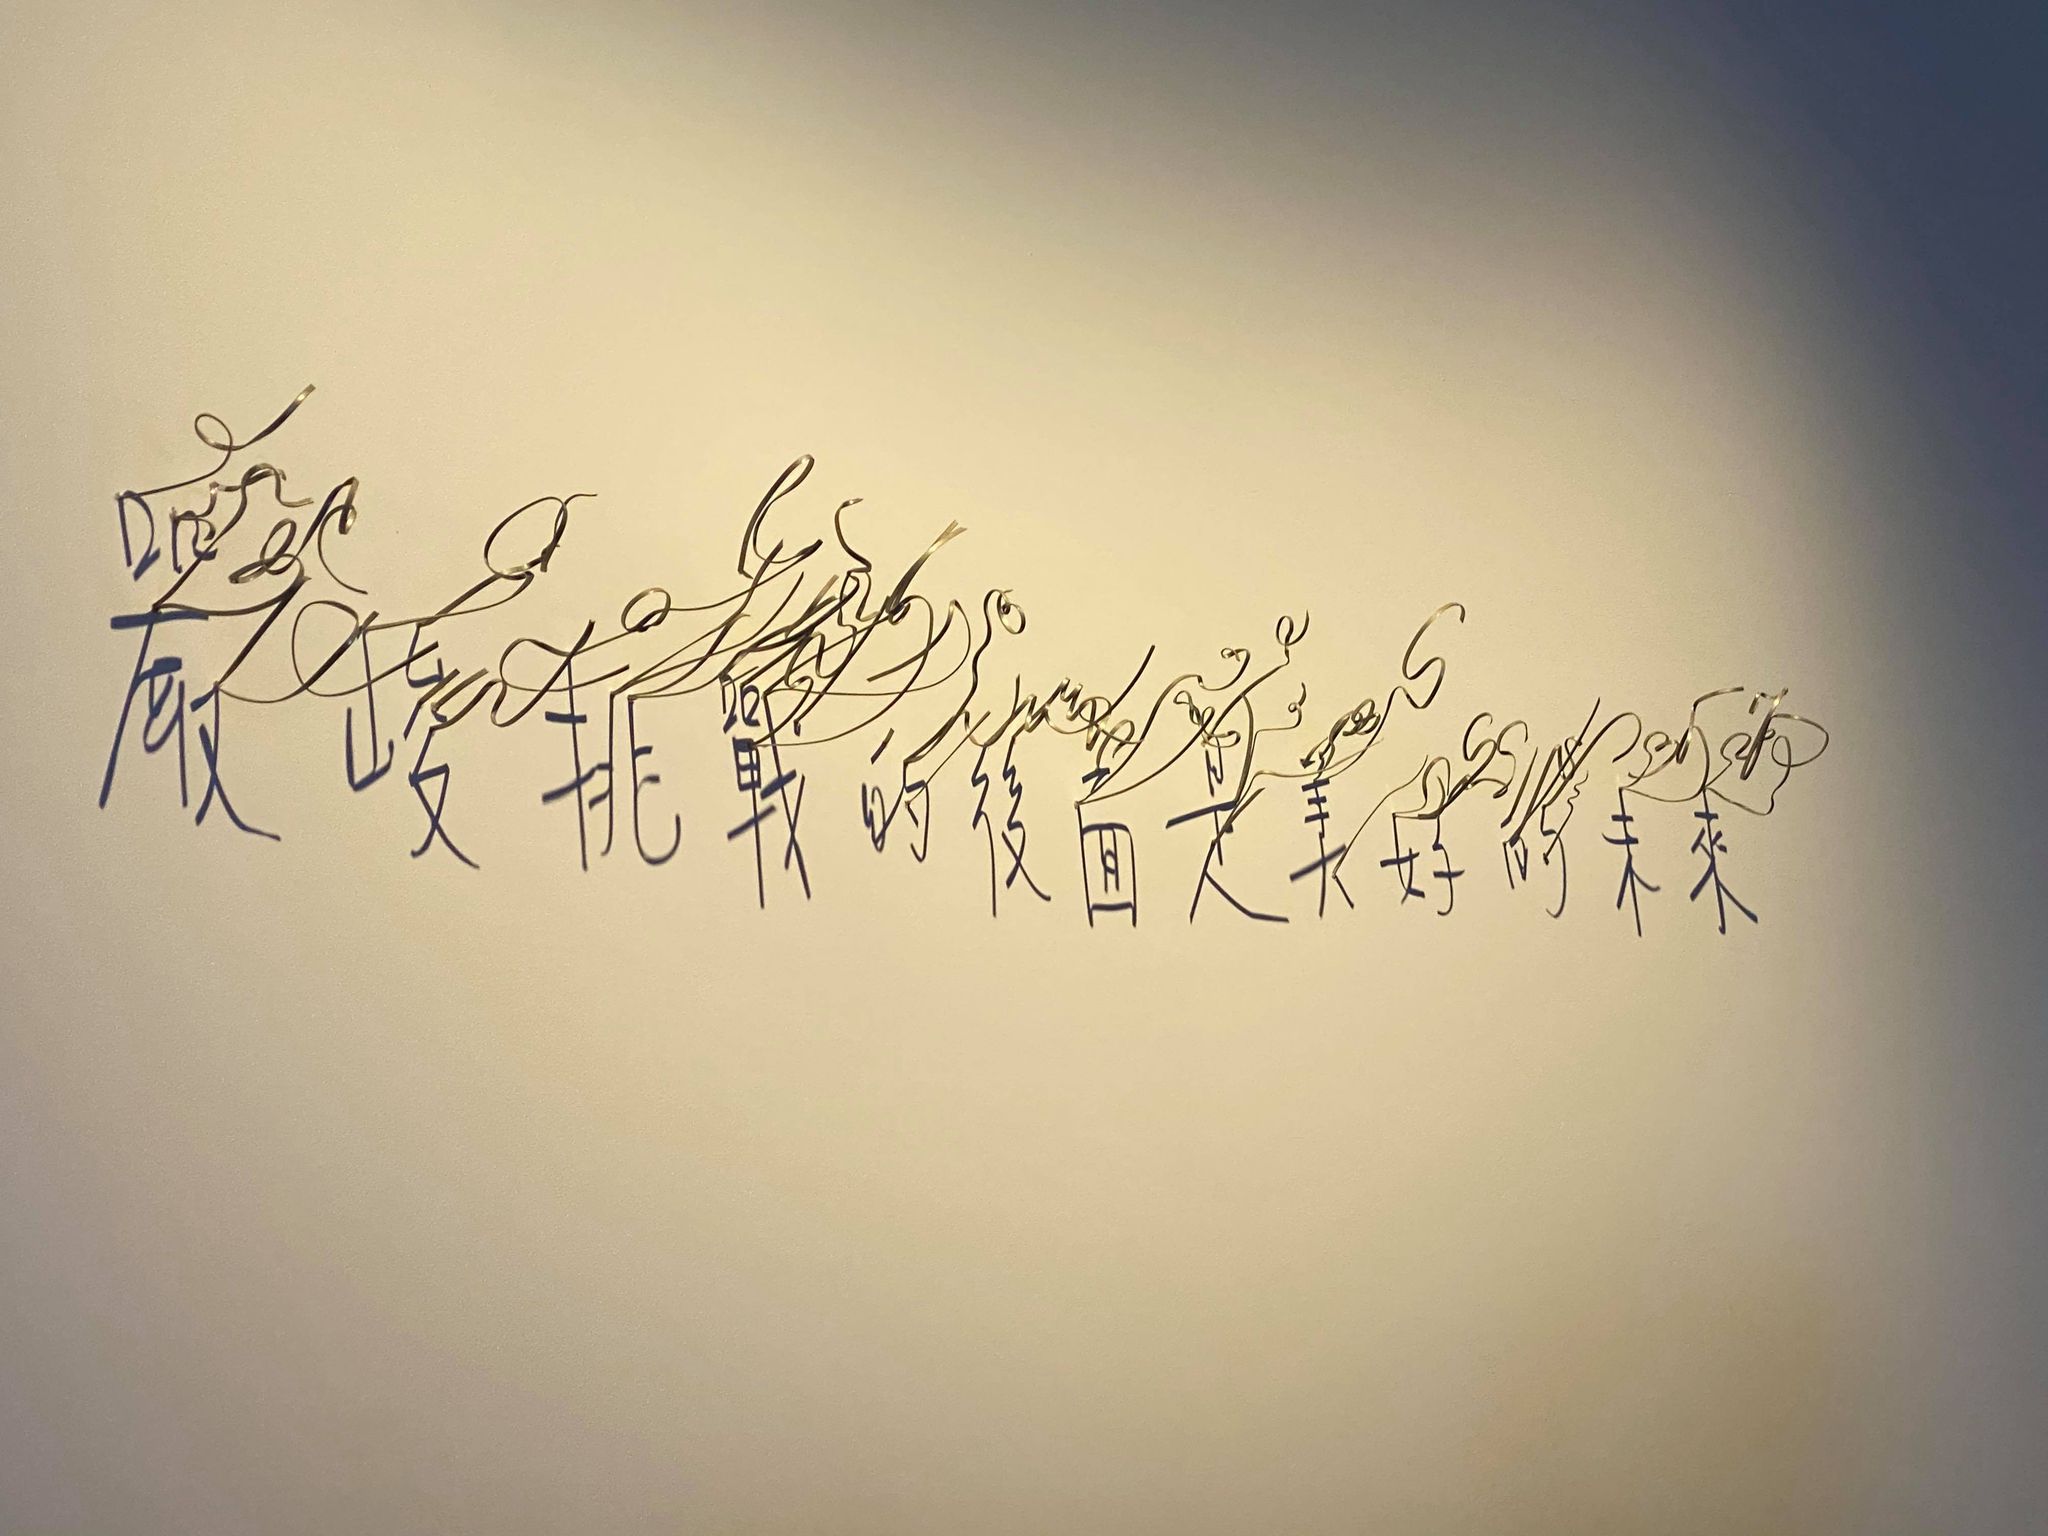 嚴峻挑戰的後面是美好的未來